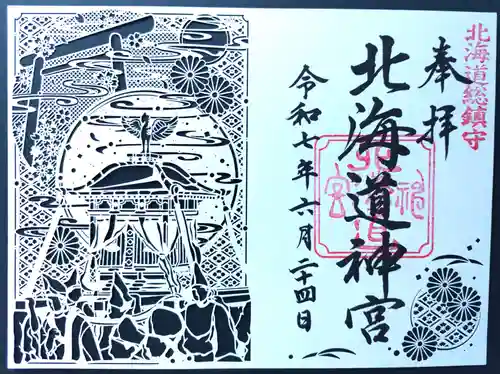 北海道総鎮守
奉拝
北海道神宮
令和七年六月二十四日
北海道神宮